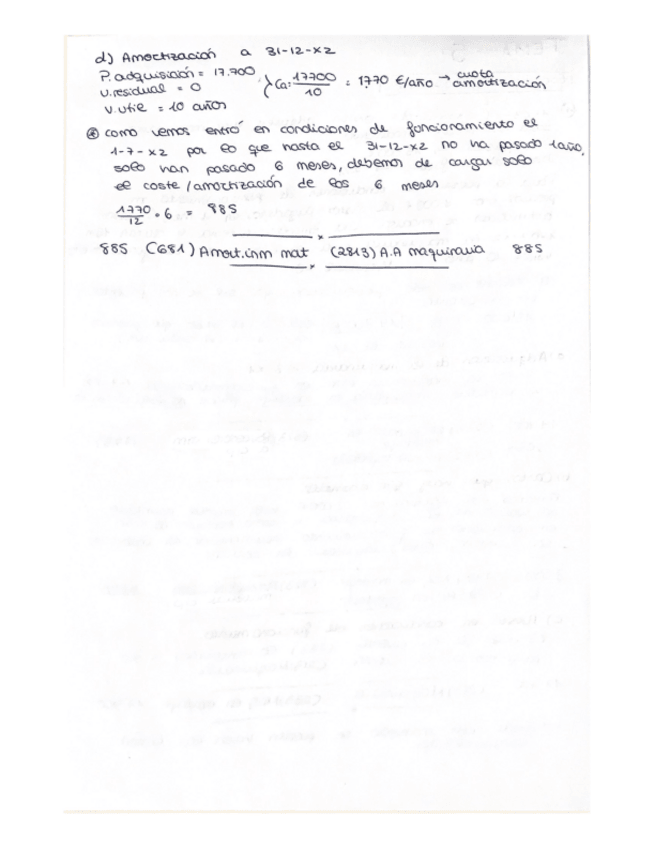 d) Amortización a 31-12-x2
P. adquisición = 17.700
V. residual = 0
V. útil = 10 años
} Ca: 17700/10 = 1770 €/año → cuota amortización
* como vemos entró en condiciones de funcionamiento el
1-7-x2 por lo que hasta el 31-12-x2 no ha pasado 1 año,
solo han pasado 6 meses, debemos de cargar solo
el coste/amortización de los 6 meses
1770/12 · 6 = 885
x
885 (681) Amort. inm mat (2813) A.A maquinaria 885
x